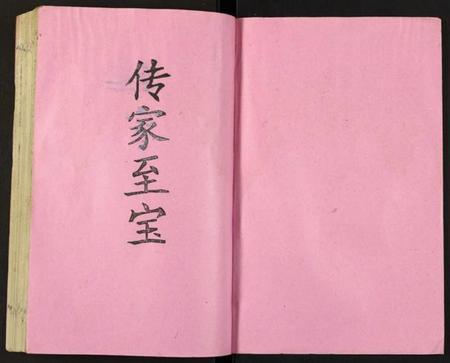 传家至宝